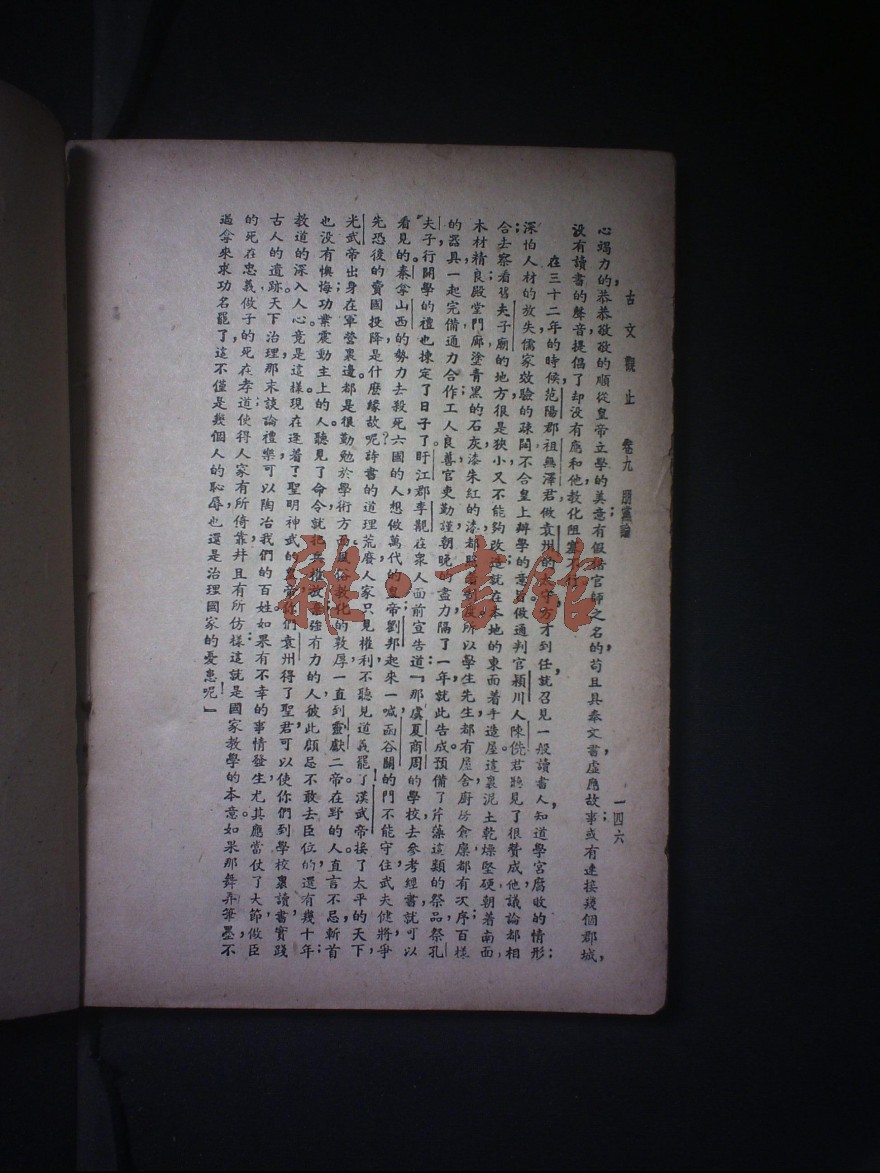 古文觀止　卷九　朋黨論　一四六
心竭力的恭恭敬敬的順從皇帝立學的美意有假借官師之名的，苟且具奉文書虛應故事；或有連接幾個郡城，
沒有讀書的聲音提倡了却沒有應和他教化阻塞不行。
在三十二年的時候，范陽郡祖無澤君做袁州的太守，方才到任，就召見一般讀書人，知道學宮腐敗的情形；
深怕人材的放失儒家效驗的疎闊不合皇上辦學的意旨。做通判官潁川人陳侁君聽見了很贊成他議論都相
合；去察看舊夫子廟的地方，很是狹小又不能夠改造，就在本地的東面着手造屋這裏泥土乾燥堅硬，朝着南面，
木材精良，殿堂門廊塗青黑的石灰，漆朱紅的漆，都照着制度所以學生先生都有屋舍，廚房倉廩都有次序；百樣
的器具，一起完備通力合作，工人良善，官吏勤謹，朝晚盡力，隔了一年，就此告成。預備了芹藻這類的祭品，祭孔
夫子，行開學的禮也揀定了日子了。盱江郡李觀在衆人面前宣告道：『那虞夏商周的學校，去參考經書就可以
看見的。秦拿山西的勢力，去殺死六國的人，想做萬代的皇帝，劉邦起來一喊，函谷關的門不能守住，武夫健將爭
先恐後的賣國投降，是什麼緣故呢？詩書的道理荒廢，人家只見權利，不聽見道義罷了！漢武帝接了太平的天下，
光武帝出身在軍營裏邊，都是很勤勉於學術方面。風俗教化的敦厚，一直到靈獻二帝。在野的人，直言不忌，斬首
也沒有懊悔；功業震動主上的人，聽見了命令，就把兵權放棄；強有力的人，彼此顧忌不敢去臣位的，還有幾十年；
教道的深入人心，竟是這樣。現在逢着了聖明神武的皇帝，你們袁州得了聖君，可以使你們到學校裏讀書，實踐
古人的遺跡。天下治理，那末談論禮樂，可以陶冶我們的百姓；如果有不幸的事情發生，尤其應當仗了大節，做臣
的死在忠義，做子的死在孝道，使得人家有所倚靠，并且有所仿樣；這就是國家教學的本意。如果那舞弄筆墨，不
過拿來求功名罷了，這不僅是幾個人的恥辱，也還是治理國家的憂患呢！』
雜·書館